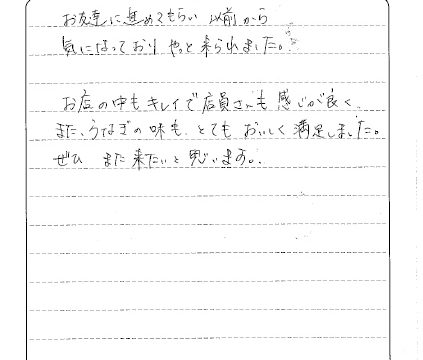 お友達に進めてもらい 以前から
気になっており やっと来られました。
お店の中もキレイで店員さんも感じが良く
また、うなぎの味も とても おいしく 満足しました。
ぜひ また 来たいと 思います。